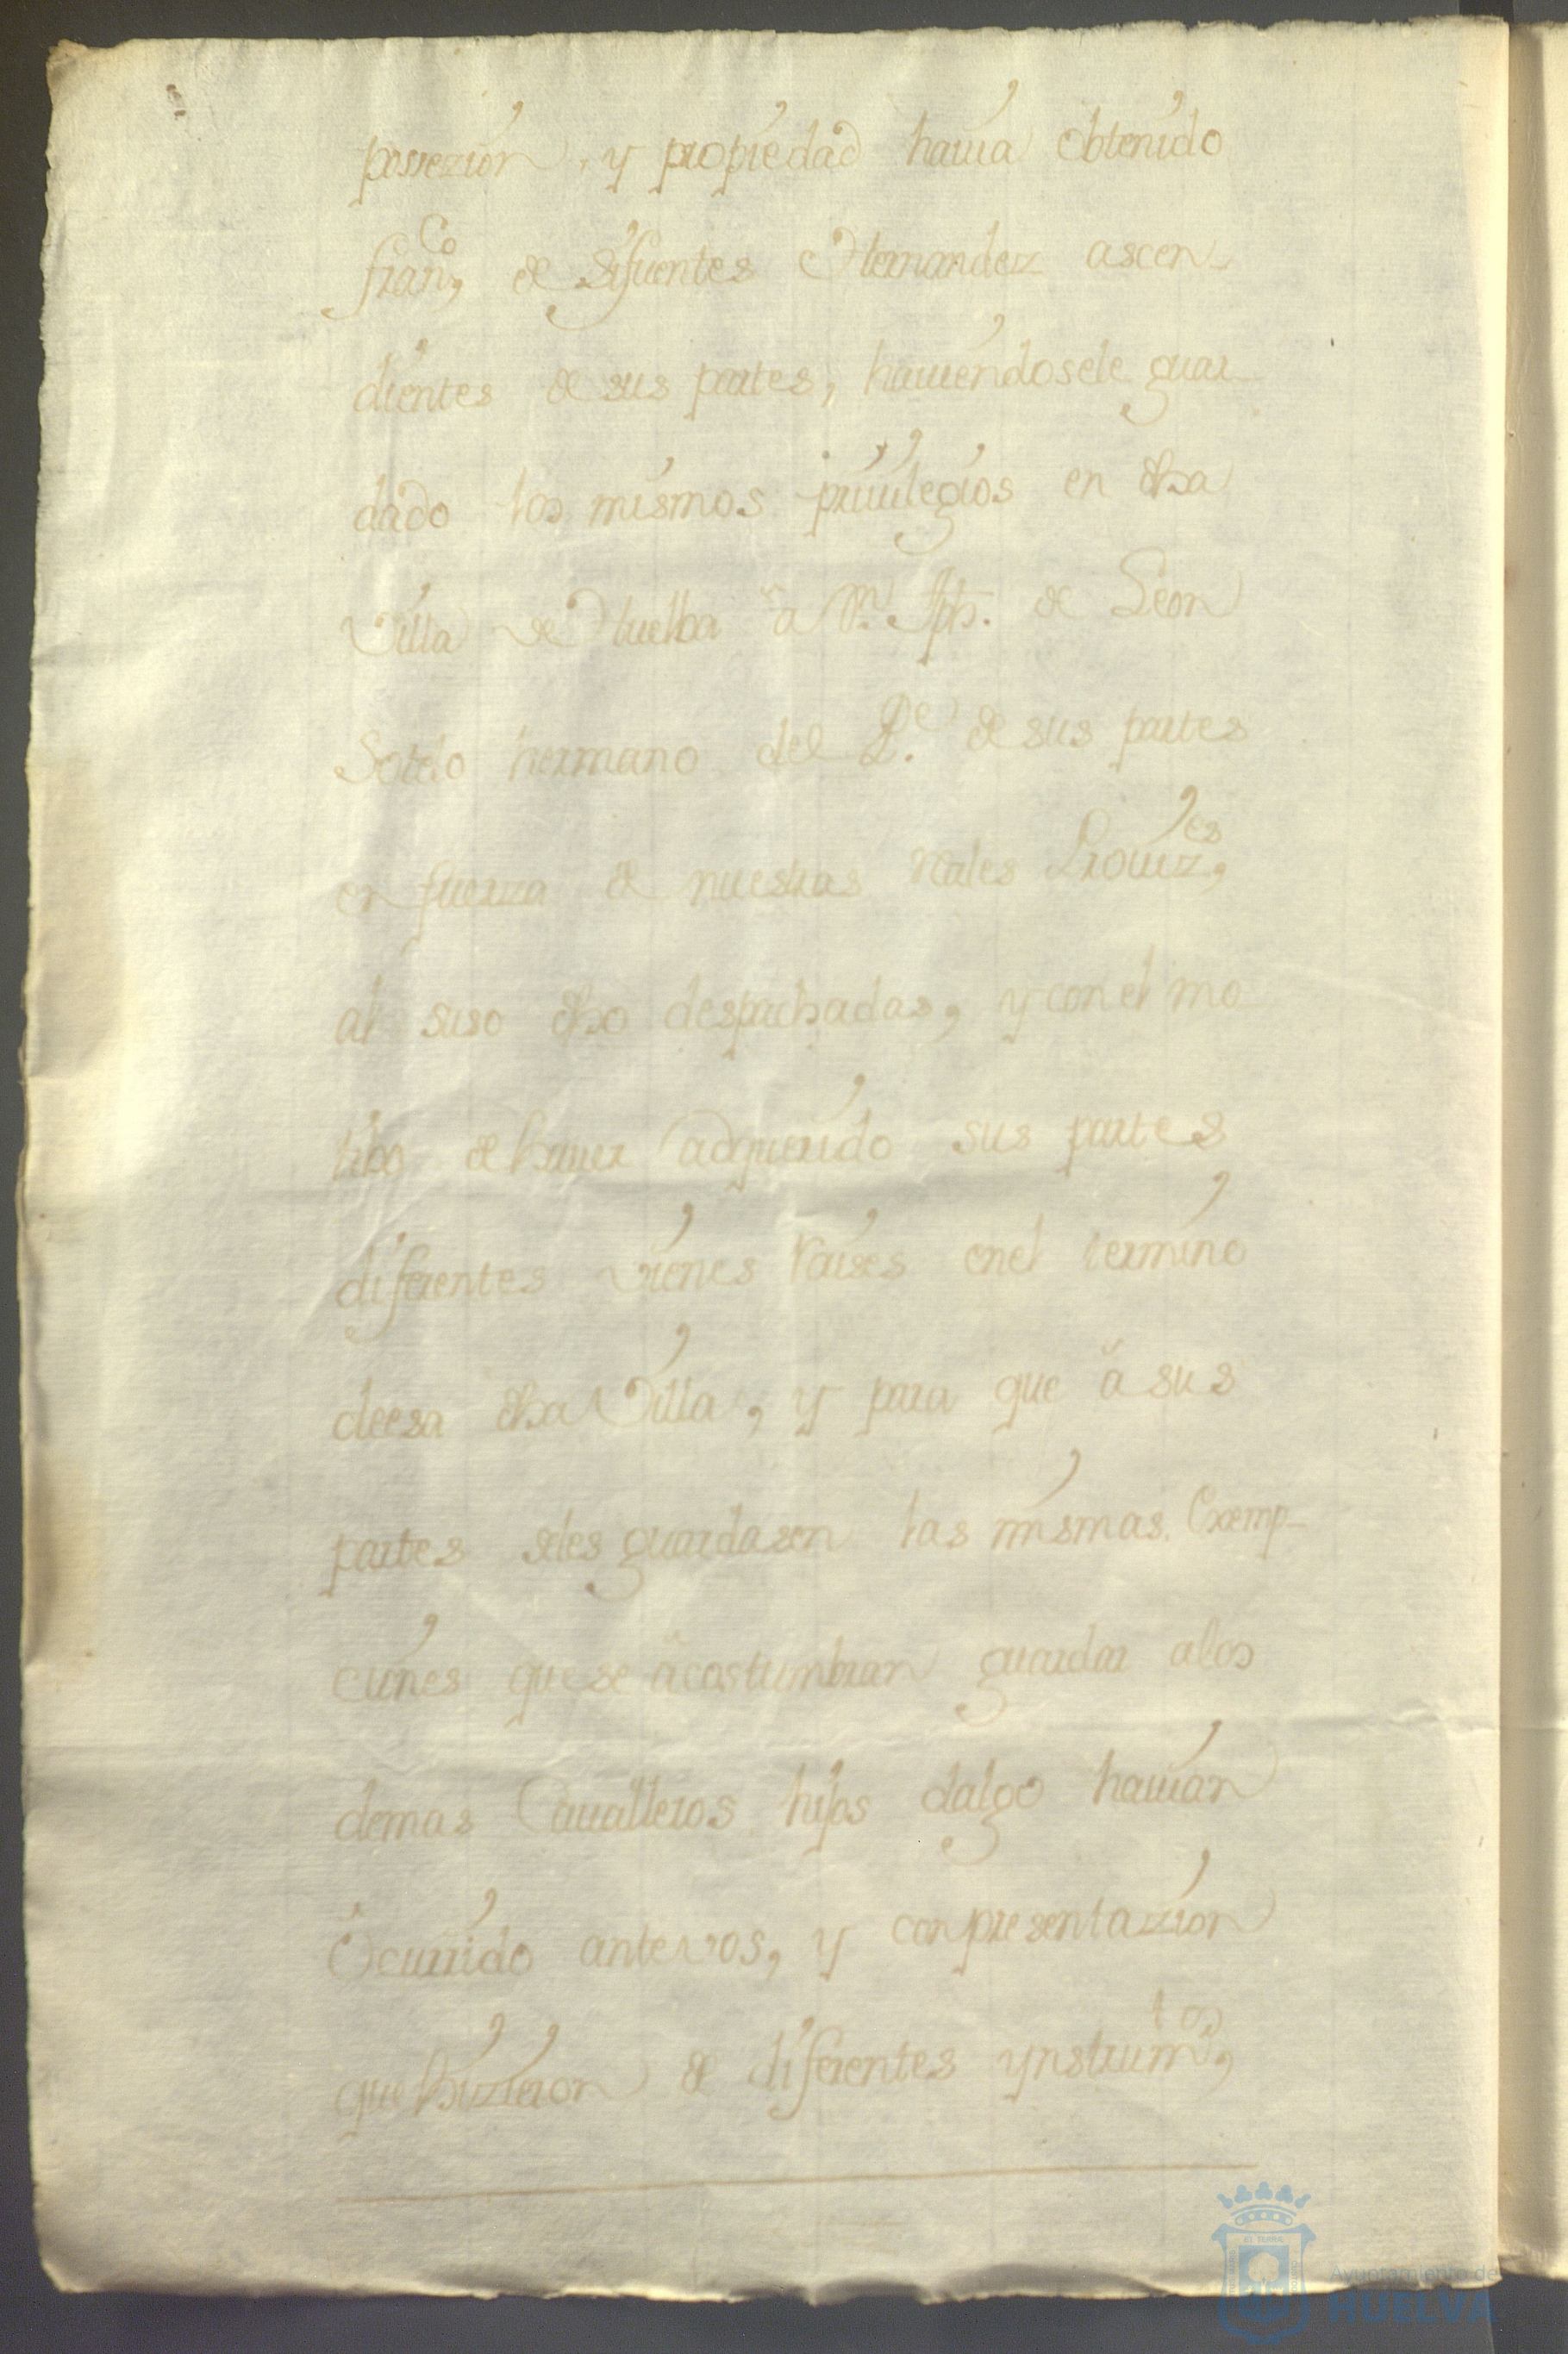 possezion, y propiedad hauia obtenido
fran,co de Sifuentes Hernandez ascen-
dientes de sus partes, hauiendosele guar-
dado los mismos priuilegios en dha
Villa de Huelba â Dn. Jph. de Leon
Sotelo hermano del Pe. de sus partes
en fuerza de nuestras reales Prouiz,es
al suso dho despachadas, y con el mo
tibo de hauer adquirido sus partes
diferentes vienes Raises en el termino
de esa dha Villa, y para que â sus
partes seles guardasen las mismas Exemp-
ciones que se acostumbran guardar alos
demas Caualleros hijos dalgo hauian
Ocurrido ante vos, y con presentazion
que hizieron de diferentes ynstrum,tos
Ayuntamiento de
HUELVA